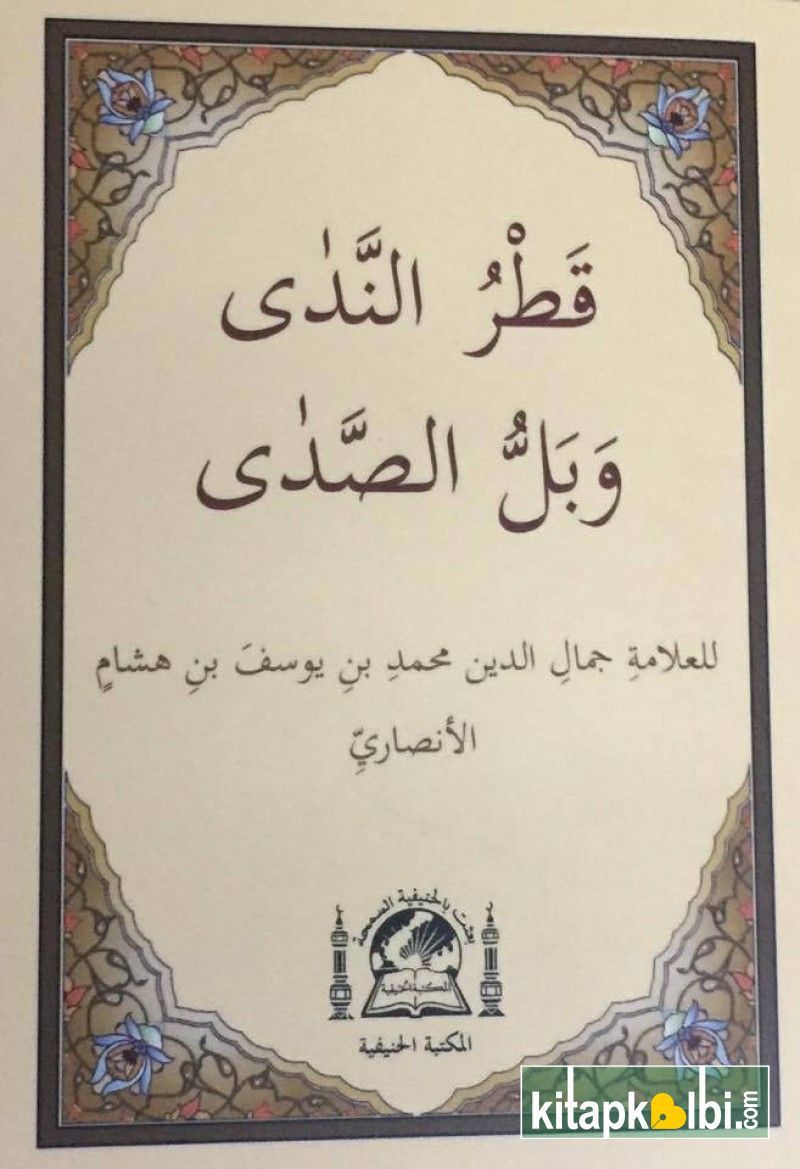 قَطْرُ النَّدٰى
وَبَلُّ الصَّدٰى
للعلامةِ جمالِ الدين محمدِ بنِ يوسفَ بنِ هشامٍ
الأنصاريِّ
بعثت بالحنيفية السمحة
المكتبة الحنيفية
المكتبة الحنيفية
kitapkalbi.com